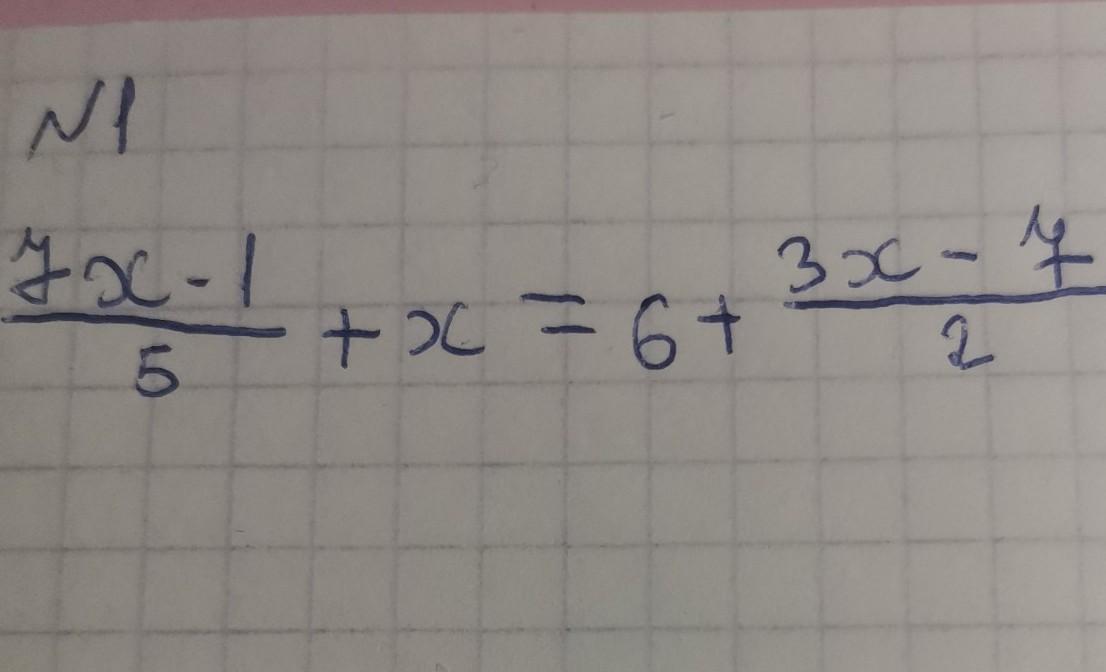 №1
(7x-1)/5 + x = 6 + (3x-7)/2